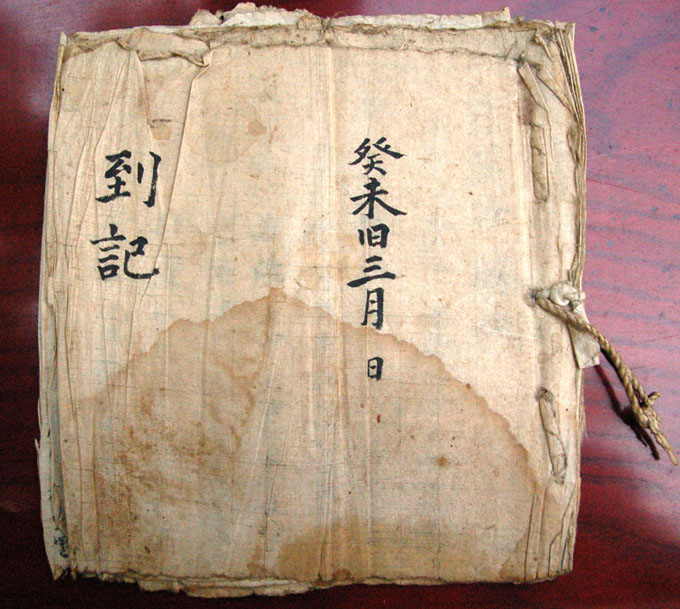 癸未旧三月 日
到記